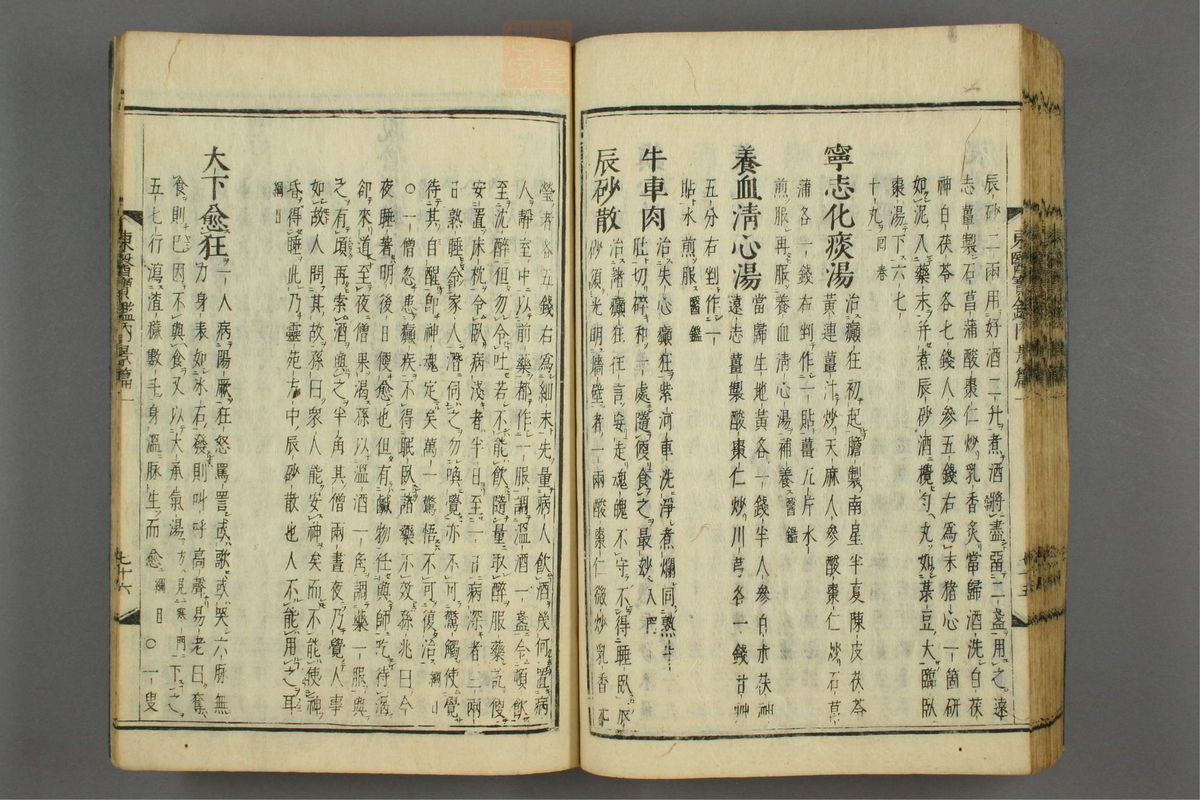 辰砂二兩用好酒二升煮酒將盡留二盞用之遠
志薑製石菖蒲酸棗仁炒乳香炙當歸酒洗白茯
神白茯苓各七錢人參五錢右爲末猪心一箇研
如泥入藥末并煮辰砂酒攪勻丸如菉豆大臨臥
棗湯下六七
十丸回春
寧志化痰湯 治癲狂初起膽製南星半夏陳皮茯苓
黃連薑汁炒天麻人參酸棗仁炒石菖
蒲各一錢右剉作一貼薑五片水
煎服再服養血清心湯補養醫鑑
養血清心湯 當歸生地黃各一錢半人參白朮茯神
遠志薑製酸棗仁炒川芎各一錢甘艸
五分右剉作一
貼水煎服醫鑑
牛車肉 治失心癲狂紫河車洗淨煮爛同熟牛
肚切碎和一處隨便食之最妙入門
辰砂散 治諸癲狂狂言妄走魂魄不守不得睡臥辰
砂須光明墻壁者一兩酸棗仁微炒乳香
瑩者各五錢右爲細末先量病人飮酒幾何置病
人靜室中以前藥都作一服調溫酒一盞令頓飮
至沈醉但勿令吐若不能飮隨量取醉服藥訖便
安置床枕令臥病淺者半日至一日病深者二兩
日熟睡令家人潛伺之勿喚覺亦不可驚觸使覺
待其自醒卽神魂定矣萬一驚悟不可復治綱目
○一僧忽患癲疾不得眠臥諸藥不效孫兆曰今
夜睡著明後日便愈也但有鹹物任與師吃待渴
却來道至夜僧果渴孫以溫酒一角調藥一服與
之有頃再索酒與之半角其僧兩晝夜乃覺人事
如故人問其故孫曰衆人能安神矣而不能使神
昏得睡此乃靈苑方中辰砂散也人不能用之耳
綱目
大下愈狂 一人病陽厥狂怒罵詈或歌或哭六脉無
力身表如冰石發則叫呼高聲易老曰奪
食則已因不與食又以大承氣湯方見寒門下之
五七行瀉渣穢數斗身溫脉生而愈綱目○一叟
東醫寶鑑內景篇一
七十六
東醫寶鑑內景篇